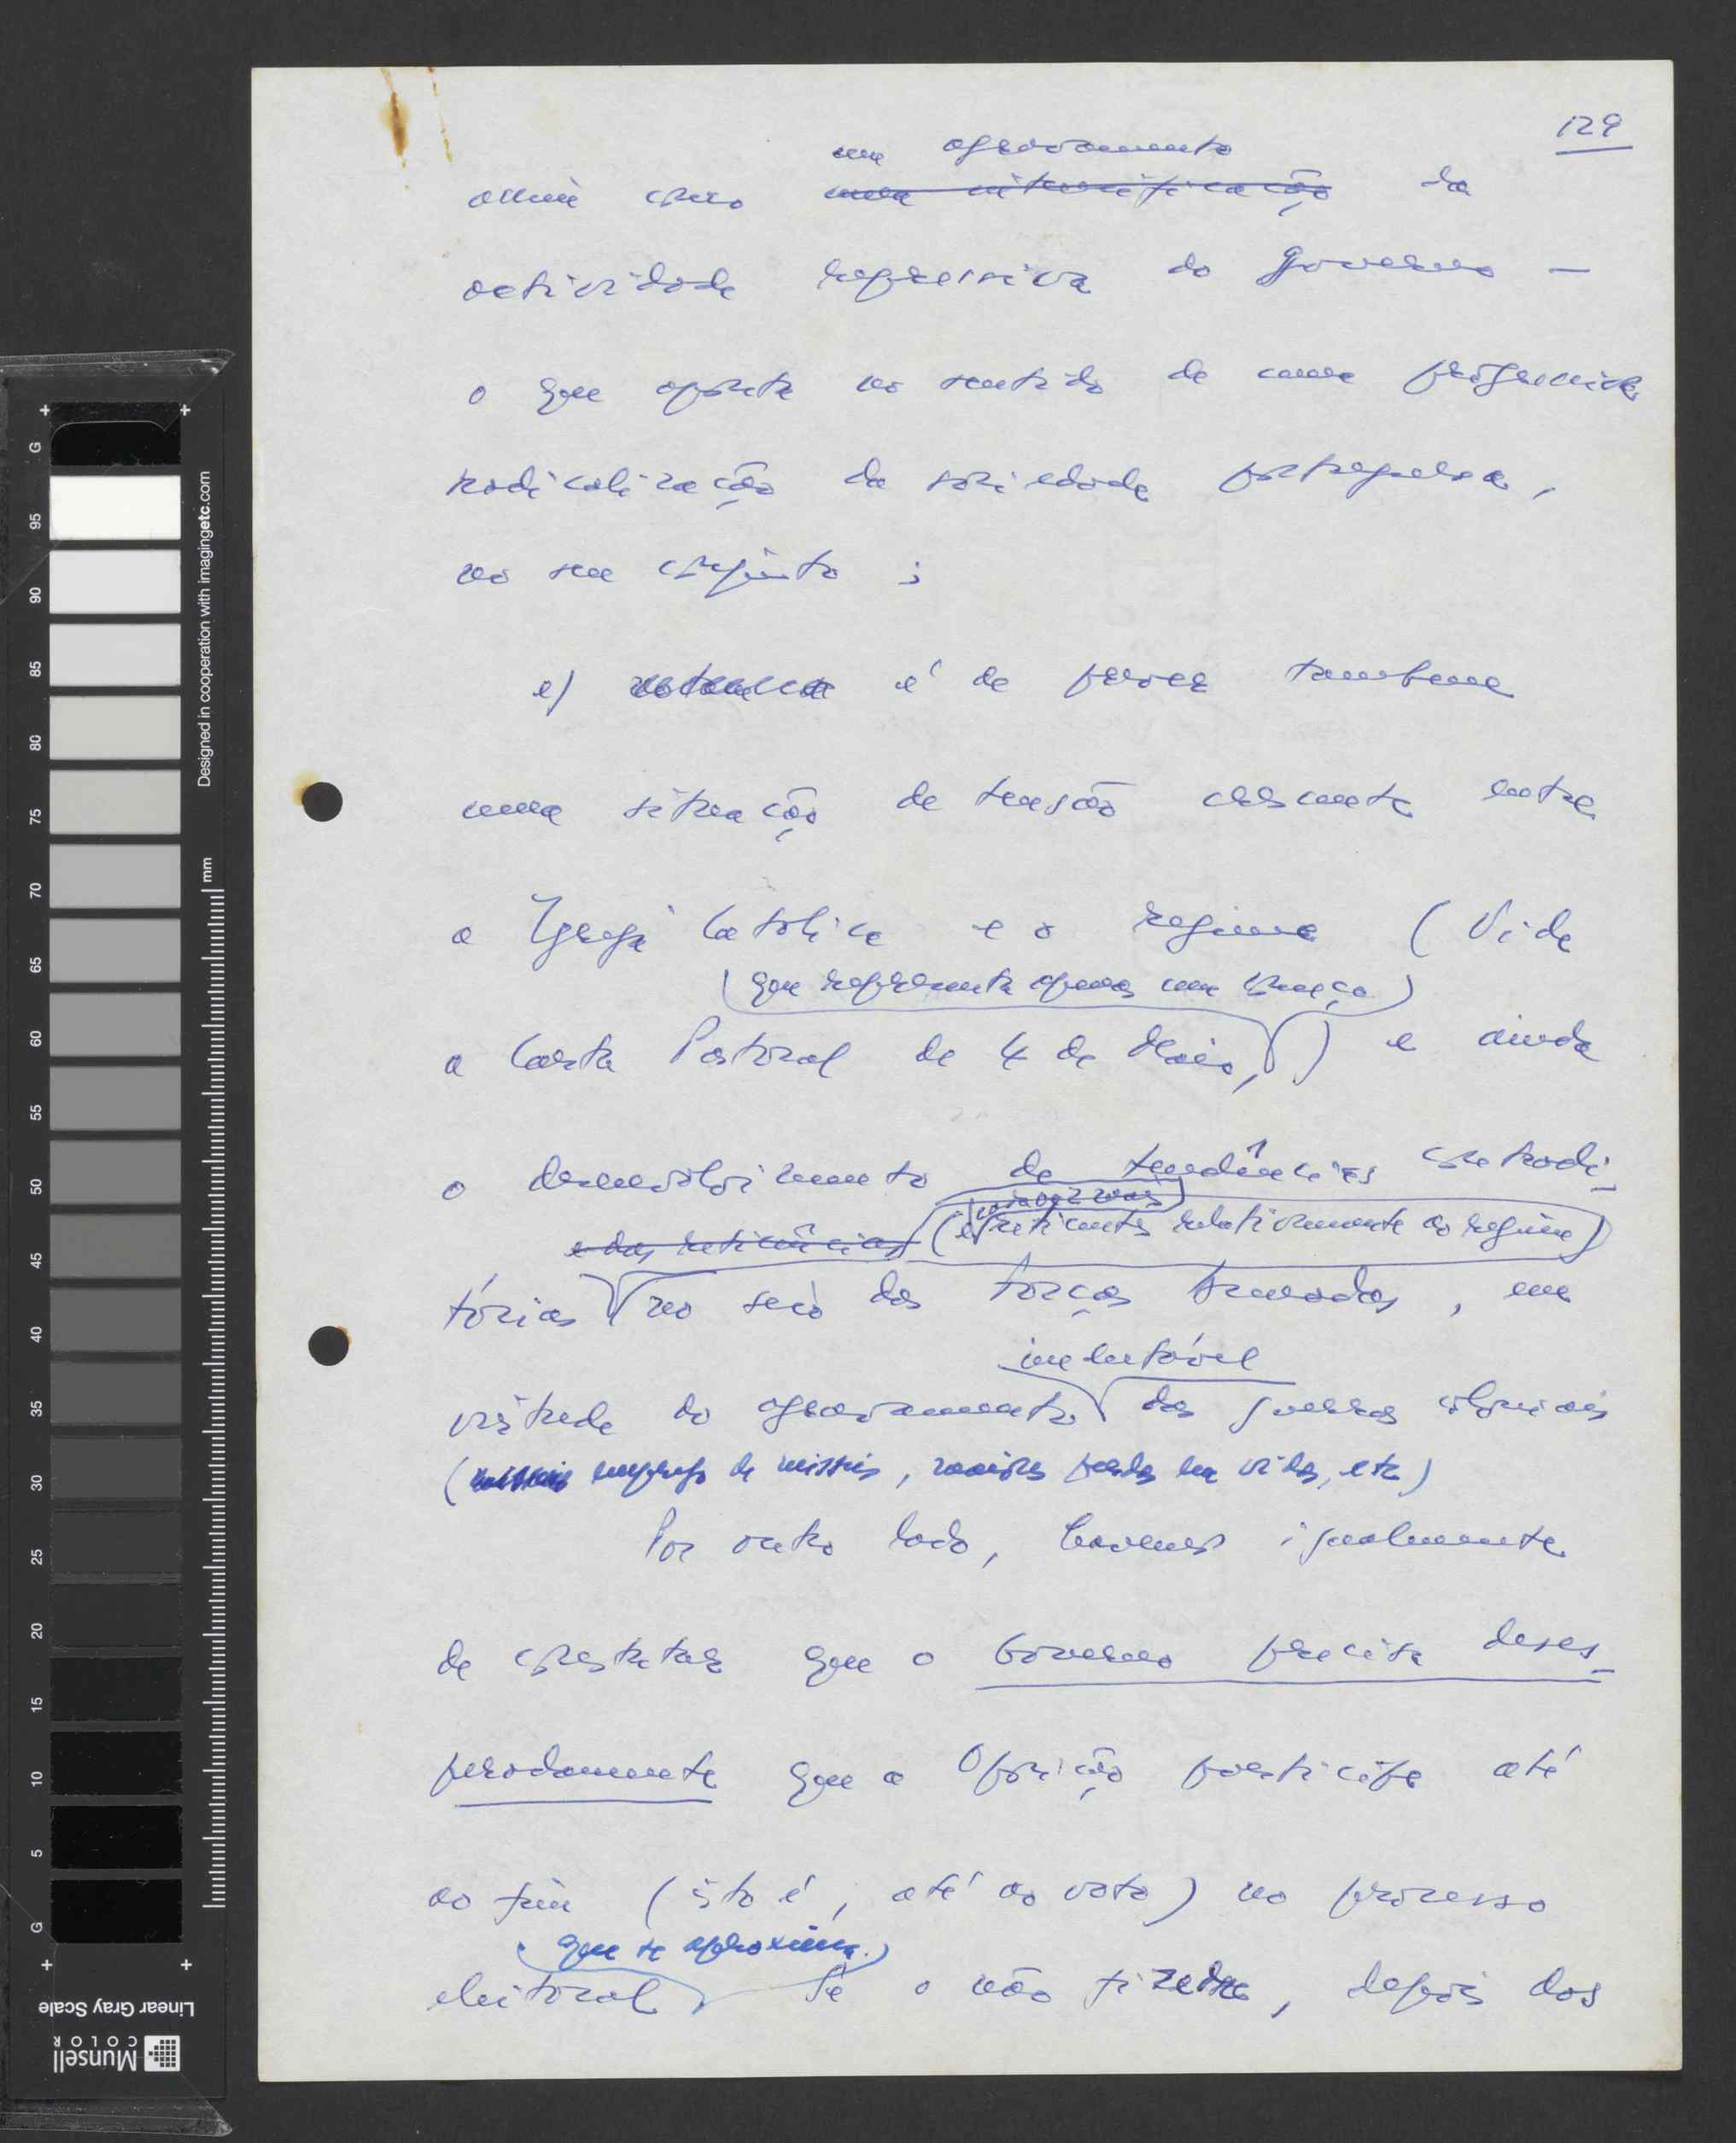 129
um agravamento
assim como uma intensificação da
actividade repressiva do Governo –
o que aponta no sentido de uma progressiva
radicalização da sociedade portuguesa,
no seu conjunto;
e) é de prever também
uma situação de tensão crescente entre
a Igreja Católica e o regime (Vide
(que representa apenas um começo)
a Carta Pastoral de 4 de Maio,) e ainda
o desenvolvimento de tendências contradi-
cada vez mais
e das reticências (e reticentes relativamente ao regime)
tórias no seio das Forças Armadas, em
inelutável
virtude do agravamento das guerras coloniais
(emprego de misseis, maiores perdas em vidas, etc)
Por outro lado, havemos igualmente
de constatar que o Governo precisa deses-
peradamente que a Oposição participe até
ao fim (isto é, até ao voto) no processo
que se aproxima.
eleitoral. Se o não fizerem, depois dos
G 95 90 85 80 75 70 65 60 55 50 45 40 35 30 25 20 15 10 5 G
mm
Designed in cooperation with imagingetc.com
Linear Gray Scale
Munsell
COLOR